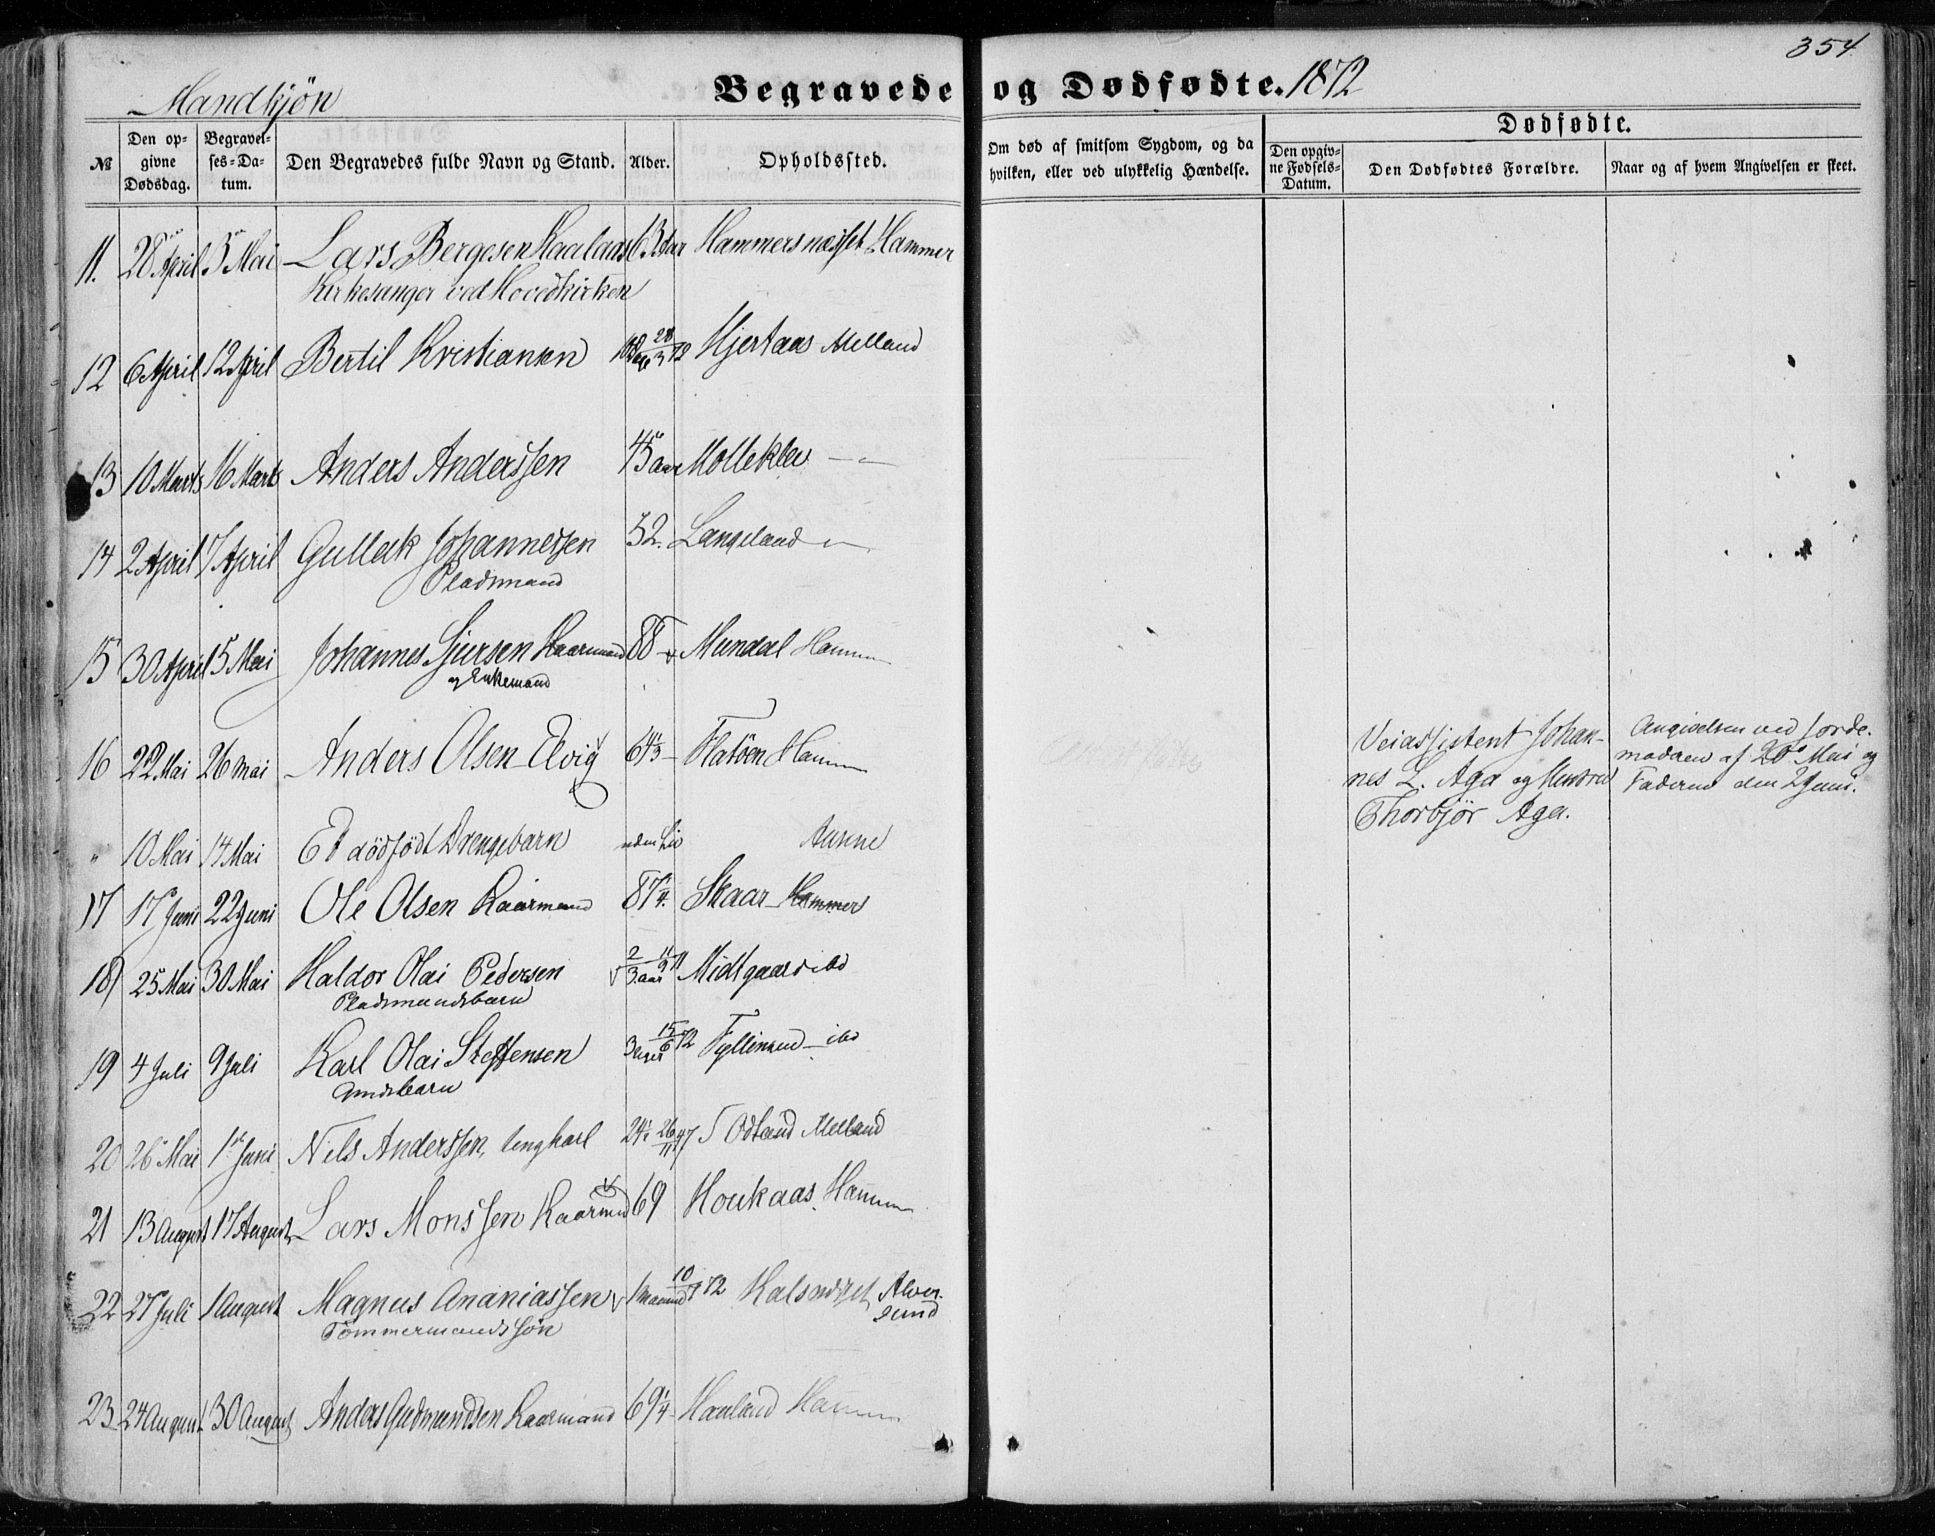 354
Mandkjøn
Begravede og Dødfødte. 1872
№
Den opgivne Dødsdag.
Begravelses-Datum.
Den Begravedes fulde Navn og Stand.
Alder.
Opholdssted.
Om død af smitsom Sygdom, og da hvilken, eller ved ulykkelig Hændelse.
Dødfødte.
Den opgivne Fødsels-Datum.
Den Dødfødtes Forældre.
Naar og af hvem Angivelsen er skeet.
11. 28 April 5 Mai Lars Bergesen 63 Aar Hammersnæsset Hammer
Kirkesanger ved Hovedkirken
12 6 April 12 April Bertil Kristiansen Hjertaas Melland
13 10 Marts 16 Marts Anders Anderssen 45 aar Molleklev — —
14 2 April 7 April Gullak Johannessen 52. Langeland —
Pladsmand
15 30 April 5 Mai Johannes Sjursen Kaarmand 88 Mundal Hamm
og Enkemand
16 22 Mai 26 Mai Anders Olsen Elvig 64 1/3 Flatöen Hamm
" 10 Mai 14 Mai Et dödfödt Drengebarn uden Liv
Veiassistent Johan-
nes L. Aga og
Thorbjør Aga.
Angivelsen ved Jorde-
moderen af 20 Mai og
Faderen den 2 Juni.
17 17 Juni 22 Juni Ole Olsen Kaarmand 87 1/4 Skaar Hammer
18 25 Mai 30 Mai Haldor Olai Pedersen 2/3 aar Midtgaard ibd
Pladsmandsbarn
19 4 Juli 9 Juli Karl Olai Steffensen 3 Uger 15/6 72 Fyllinsund ibd
20 26 Mai 1st Juni Nils Anderssen, Ungkarl 24 1/2 26/11 47 Odland Melland
21 13 August 17 August Lars Monssen Kaarmd 69 Houkaas Hamm
22 27 Juli 1 August Magnus Ananiassen 1 Maaned 10/7 72 Alver-
sund
Tömmermands Sön
23 24 August 30 August Anders Gudmundsen Kaarmand 69 1/4 Hauland Hamm